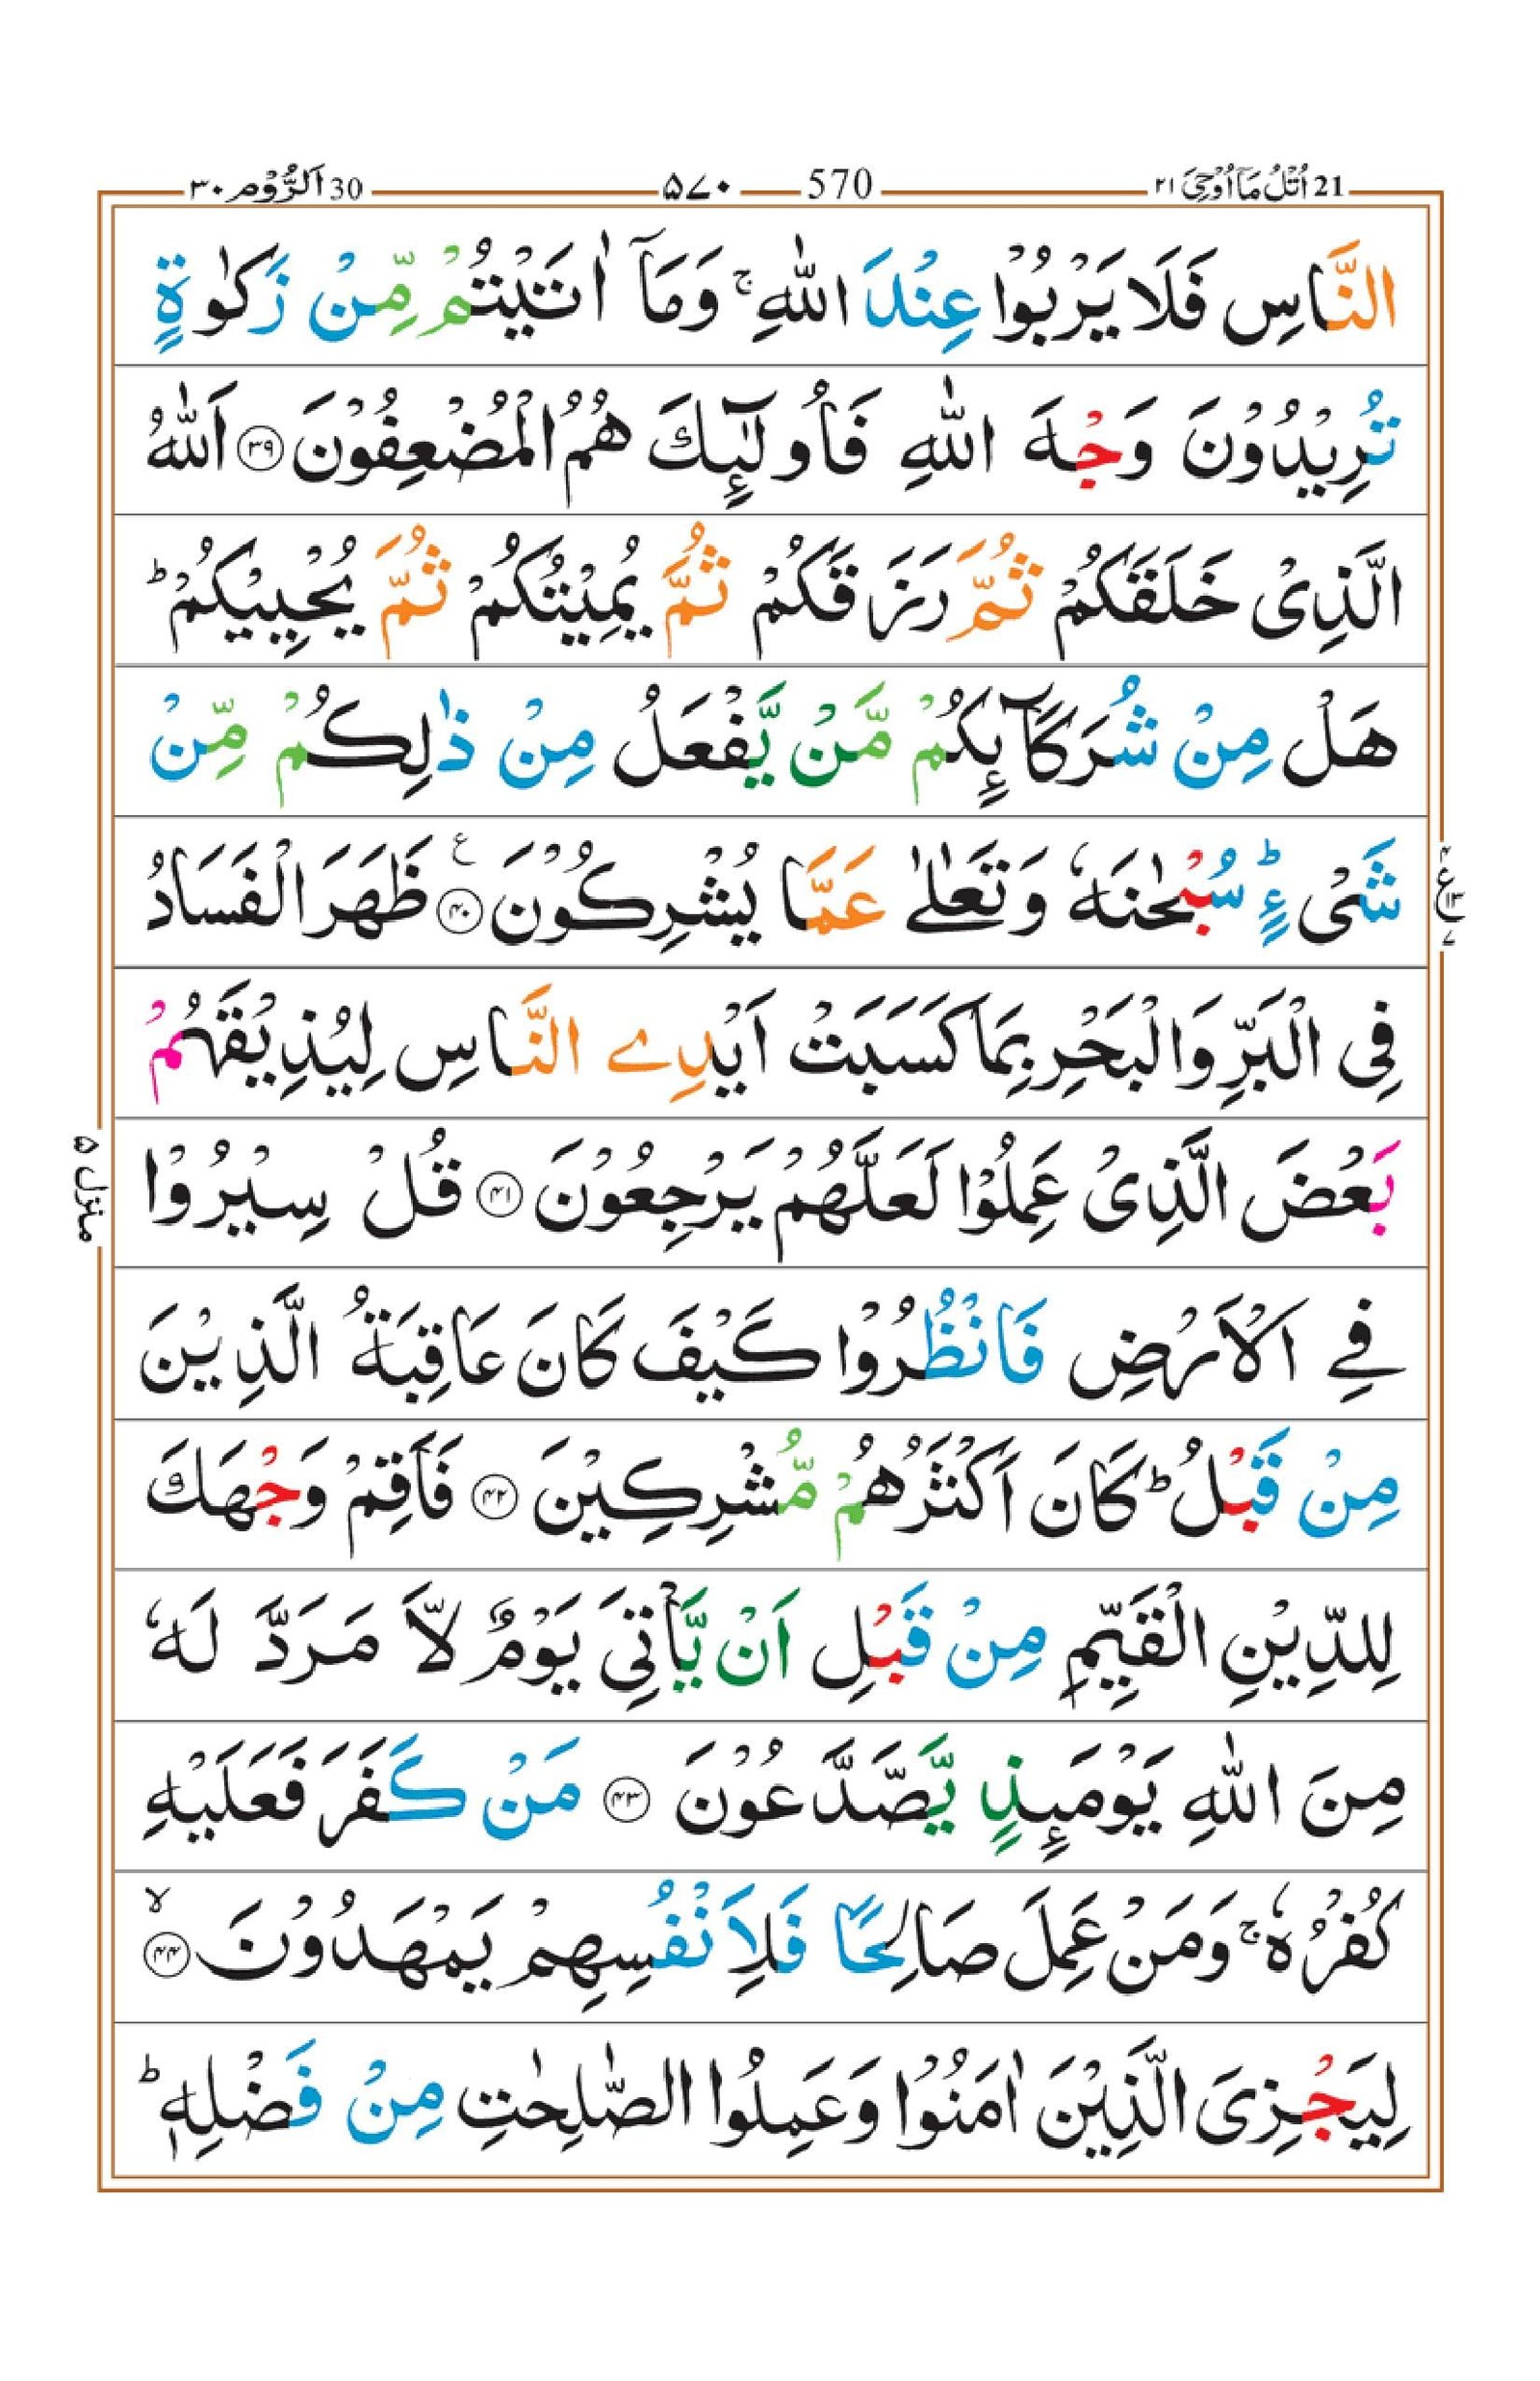 30 اَلرُّوْم ٣٠ ۵۷۰ 570 21 اُتْلُ مَآ اُوْحِیَ ٢١
النَّاسِ فَلَا يَرْبُوْا عِنْدَ اللّٰهِ ۚ وَمَآ اٰتَيْتُمْ مِّنْ زَكٰوةٍ
تُرِيْدُوْنَ وَجْهَ اللّٰهِ فَاُولٰٓئِكَ هُمُ الْمُضْعِفُوْنَ ۝۳۹ اَللّٰهُ
الَّذِىْ خَلَقَكُمْ ثُمَّ رَزَقَكُمْ ثُمَّ يُمِيْتُكُمْ ثُمَّ يُحْيِيْكُمْ ؕ
هَلْ مِنْ شُرَكَآئِكُمْ مَّنْ يَّفْعَلُ مِنْ ذٰلِكُمْ مِّنْ
شَىْءٍ ؕ سُبْحٰنَهٗ وَتَعٰلٰى عَمَّا يُشْرِكُوْنَ ۝۴۰ ع ظَهَرَ الْفَسَادُ
ع ١٣ ٧
فِى الْبَرِّ وَالْبَحْرِ بِمَا كَسَبَتْ اَيْدِى النَّاسِ لِيُذِيْقَهُمْ
بَعْضَ الَّذِىْ عَمِلُوْا لَعَلَّهُمْ يَرْجِعُوْنَ ۝۴۱ قُلْ سِيْرُوْا
منزل ۵
فِى الْاَرْضِ فَانْظُرُوْا كَيْفَ كَانَ عَاقِبَةُ الَّذِيْنَ
مِنْ قَبْلُ ؕ كَانَ اَكْثَرُهُمْ مُّشْرِكِيْنَ ۝۴۲ فَاَقِمْ وَجْهَكَ
لِلدِّيْنِ الْقَيِّمِ مِنْ قَبْلِ اَنْ يَّاْتِىَ يَوْمٌ لَّا مَرَدَّ لَهٗ
مِنَ اللّٰهِ يَوْمَئِذٍ يَّصَّدَّعُوْنَ ۝۴۳ مَنْ كَفَرَ فَعَلَيْهِ
كُفْرُهٗ ۚ وَمَنْ عَمِلَ صَالِحًا فَلِاَنْفُسِهِمْ يَمْهَدُوْنَ ۝۴۴ۙ
لِيَجْزِىَ الَّذِيْنَ اٰمَنُوْا وَعَمِلُوا الصّٰلِحٰتِ مِنْ فَضْلِهٖ ؕ